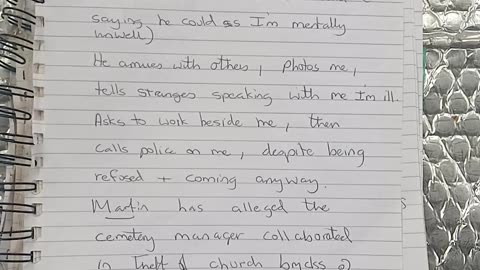 saying he could as I'm mentally
unwell)
He arrives with others, photos me,
tells stranges speaking with me I'm ill.
Asks to work beside me, then
calls police on me, despite being
refused + coming anyway.
Martin has alleged the
cemetery manager collaborated
in theft of church